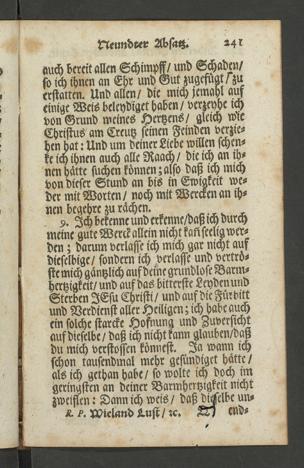 Neundter Absatz. 241
auch bereit allen Schimpff/ und Schaden/
so ich ihnen an Ehr und Gut zugefügt/ zu
erstatten. Und allen/ die mich jemahl auf
einige Weis beleydiget haben/ verzeyhe ich
von Grund meines Hertzens/ gleich wie
Christus am Creutz seinen Feinden verzie-
hen hat: Und um deiner Liebe willen schen-
ke ich ihnen auch alle Raach/ die ich an ih-
nen hätte suchen können; also daß ich mich
von dieser Stund an bis in Ewigkeit we-
der mit Worten/ noch mit Wercken an ih-
nen begehre zu rächen.
9. Ich bekenne und erkenne/ daß ich durch
meine gute Werck allein nicht kan seelig wer-
den; darum verlasse ich mich gar nicht auf
dieselbige/ sondern ich verlasse und vertrö-
ste mich gäntzlich auf deine grundlose Barm-
hertzigkeit/ und auf das bitterste Leyden und
Sterben JEsu Christi/ und auf die Fürbitt
und Verdienst aller Heiligen; ich habe auch
ein solche starcke Hofnung und Zuversicht
auf dieselbe/ daß ich nicht kann glauben/ daß
du mich verstossen könnest. Ja wann ich
schon tausendmal mehr gesündiget hätte/
als ich gethan habe/ so wolte ich doch im
geringsten an deiner Barmhertzigkeit nicht
zweiflen: Dann ich weis/ daß dieselbe un-
R. P. Wieland Lust/ ꝛc. end-